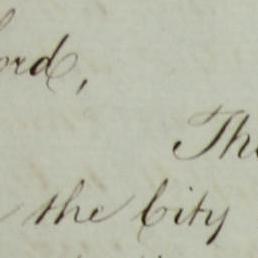 ord,
The
the City